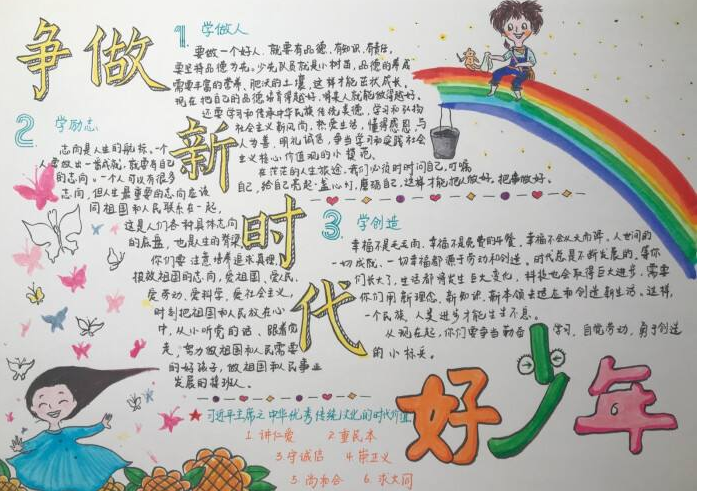 争做
新
时
代
好少年
1 学做人
要做一个好人,就要有品德、有知识、有责任,
要坚持品德为先。少先队员就是小树苗,品德的养成
需要丰富的营养、肥沃的土壤,这样才能茁壮成长。
现在把自己的品德培育得越好,将来人就能做得越好。
还要学习和传承中华民族传统美德,学习和弘扬
社会主义新风尚,热爱生活,懂得感恩,与
人为善,明礼诚信,争当学习和实践社会
主义核心价值观的小模范。
在茫茫的人生旅途,我们必须时时问自己,叮嘱
自己,给自己点起一盏心灯,磨砺自己,这样才能把人做好,把事做好。
2 学励志
志向是人生的航标。一个
人要做出一番成就,就要有自己
的志向。一个人可以有很多
志向,但人生最重要的志向应该
同祖国和人民联系在一起,
这是人们各种具体志向
的底盘,也是人生的脊梁。
你们要注意培养追求真理、
报效祖国的志向,爱祖国、爱人民、
爱劳动、爱科学、爱社会主义,
时刻把祖国和人民放在心
中,从小听党的话、跟着党
走,努力做祖国和人民需要
的好孩子,做祖国和人民事业
发展的接班人。
3 学创造
幸福不是毛毛雨,幸福不是免费的午餐,幸福不会从天而降。人世间的
一切成就、一切幸福都源于劳动和创造。时代总是不断发展的,等你
们长大了,生活都将发生巨大变化,科技也会取得巨大进步,需要
你们用新理念、新知识、新本领去适应和创造新生活。这样,
一个民族、人类进步才能生生不息。
从现在起,你们要争当勤奋学习、自觉劳动、勇于创造
的小标兵。
★习近平主席之中华优秀传统文化的时代价值
1. 讲仁爱 2 重民本
3.守诚信 4.崇正义
5 尚和合 6. 求大同